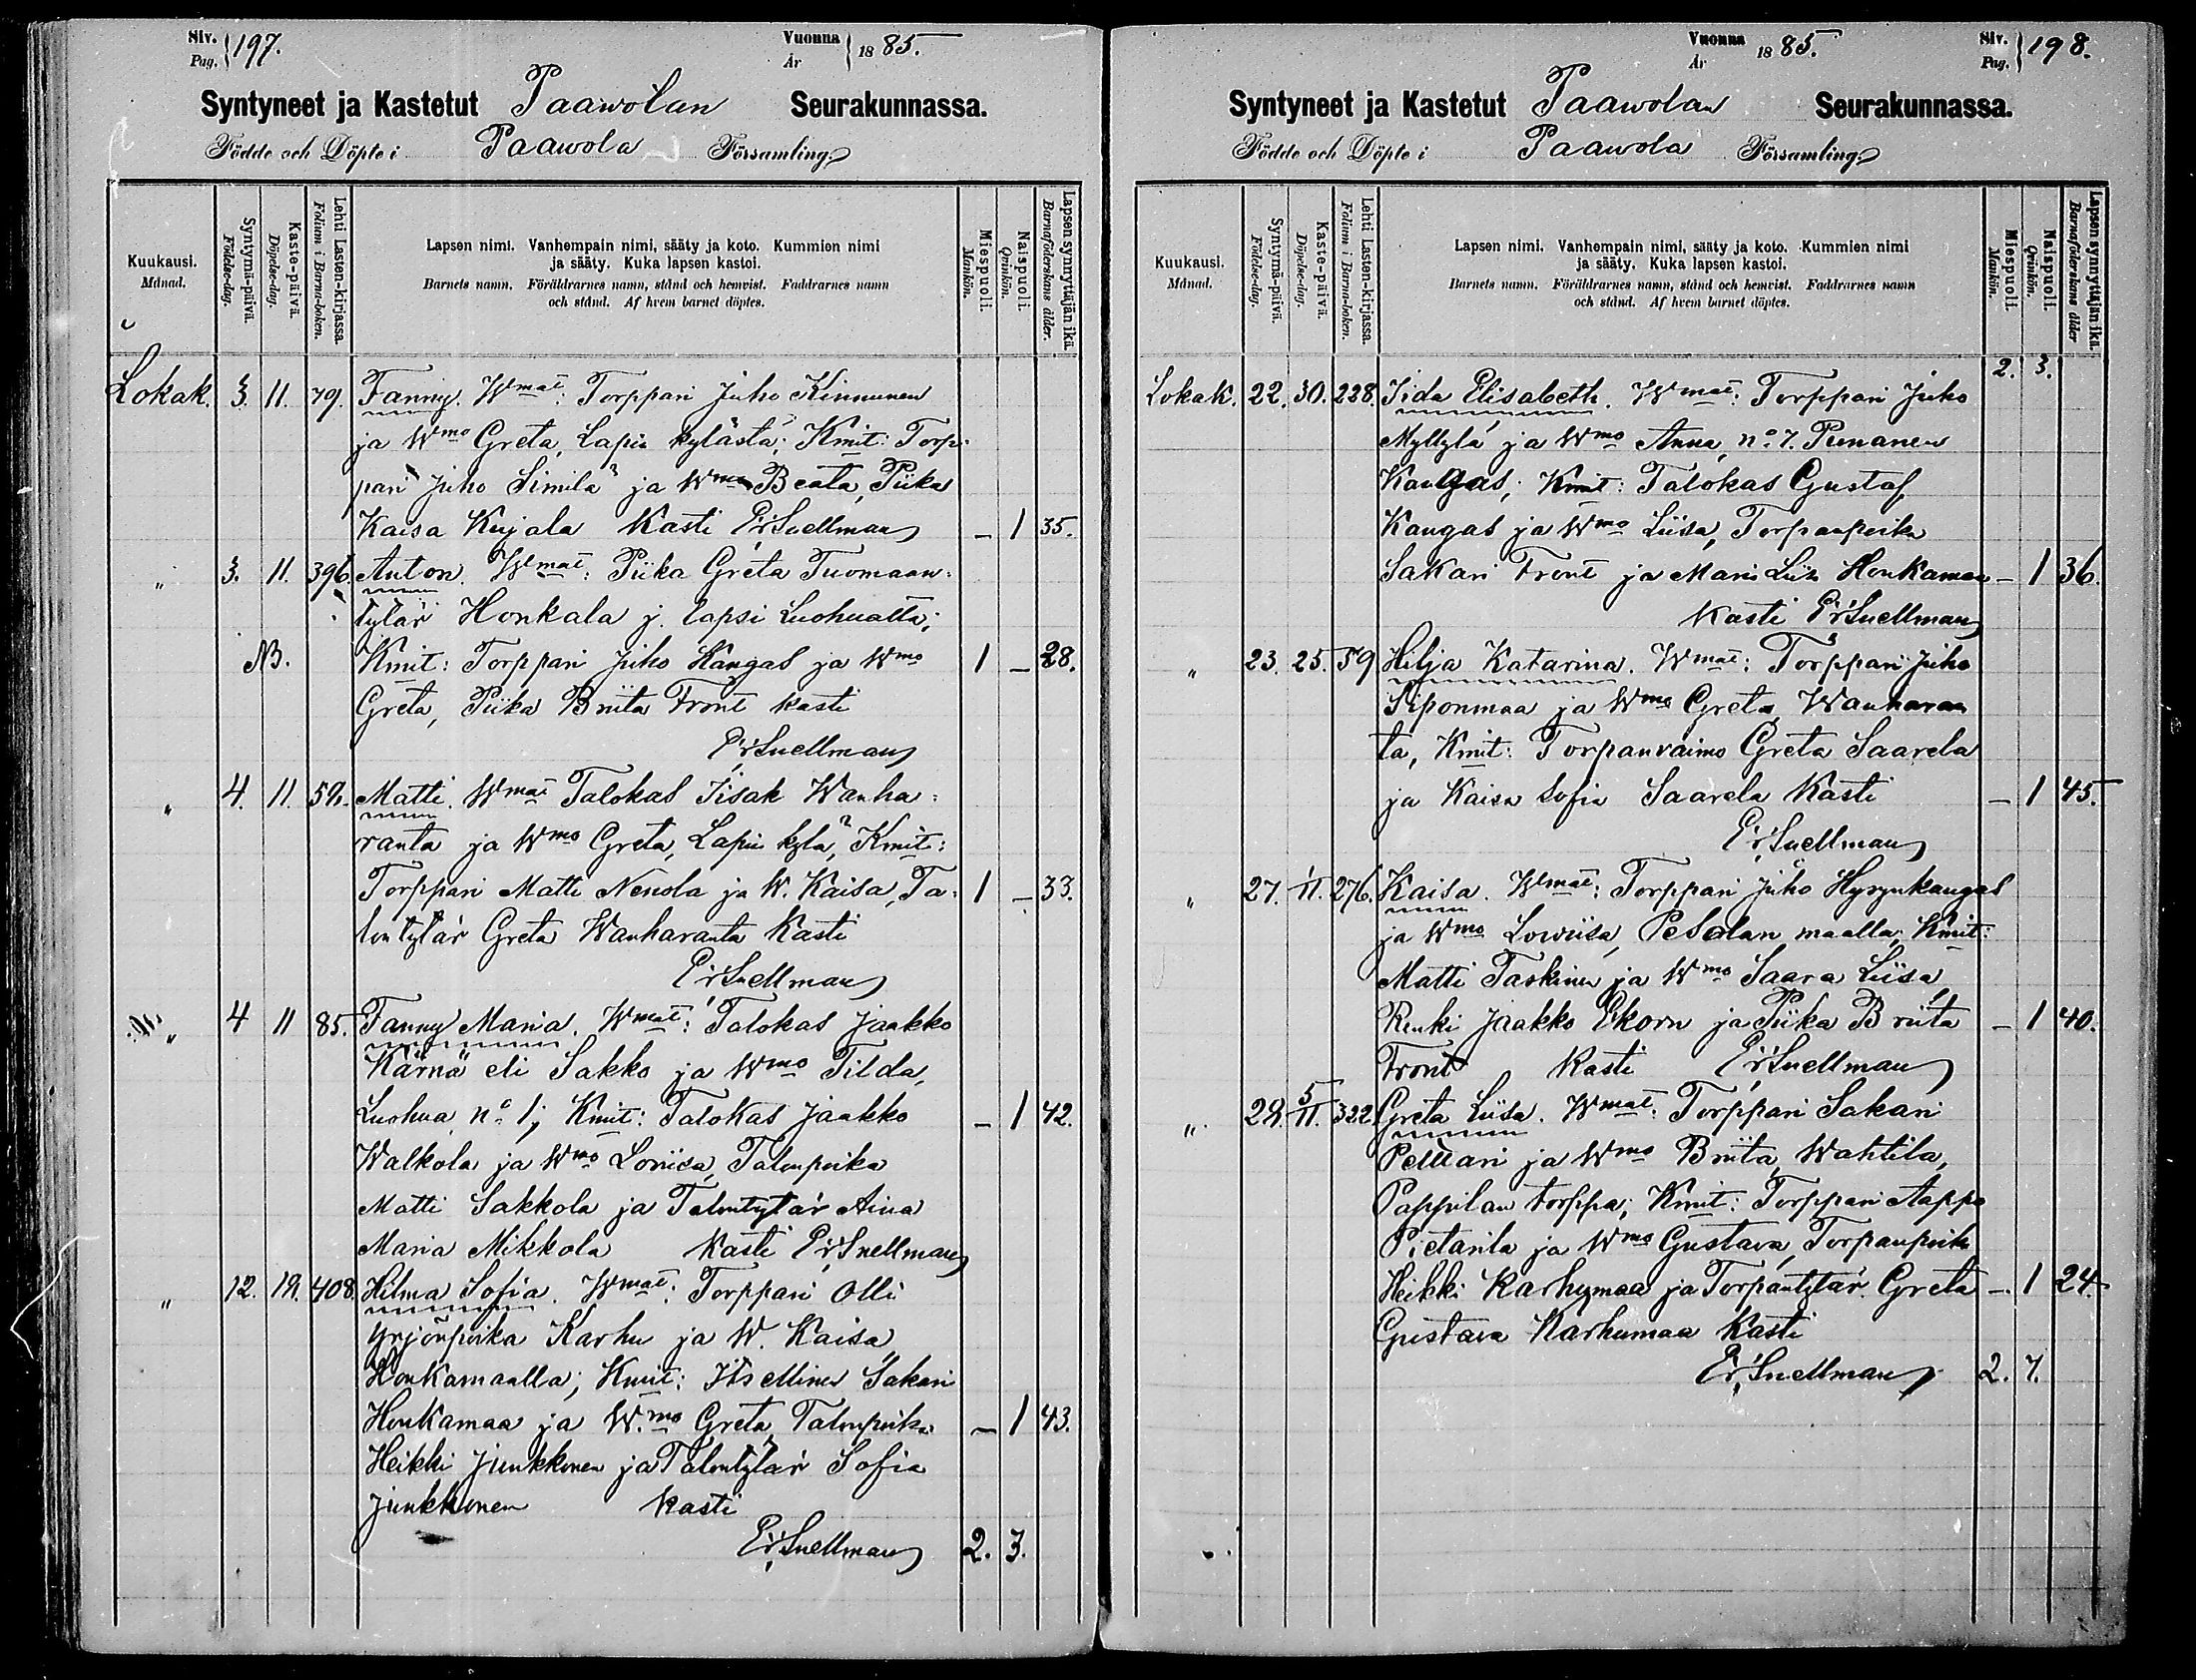 Siv. Pag. 197.
Vuonna År 1885.
Syntyneet ja Kastetut Paawolan Seurakunnassa.
Födde och Döpte i Paawola Församling
Kuukausi. Månad.
Syntymä-päivä. Födelse-dag.
Kaste-päivä. Döpelse-dag.
Lehti Lasten-kirjassa. Folium i Barna-boken.
Lapsen nimi. Vanhempain nimi, sääty ja koto. Kummien nimi
ja sääty. Kuka lapsen kastoi.
Barnets namn. Föräldrarnes namn, stånd och hemvist. Faddrarnes namn
och stånd. Af hvem barnet döptes.
Miespuoli. Mankön.
Naispuoli. Qvinkön.
Lapsen synnyttäjän ikä. Barnaföderskans ålder.
Lokak. 3. 11. 79. Fanny. Wmat: Torppari Juho Kinnunen
ja Wmo Greta, Lapin kylästä; Kmit: Torp-
pari Juho Similä ja Wmo Beata, Piika
Kaisa Kujala Kasti Er. Snellman – 1 35.
" 3. 11. 396. Anton. Wmat: Piika Greta Tuomaan-
tytär Honkala j. lapsi Luohualta;
NB. Kmit: Torppari Juho Kangas ja Wmo 1 – 28.
Greta, Piika Briita Front kasti
Er. Snellman
" 4. 11. 59. Matti. Wmat Talokas Iisak Wanha-
ranta ja Wmo Greta, Lapin kylä, Kmit:
Torppari Matti Nenola ja W. Kaisa, Ta- 1 – 33.
lontytär Greta Wanharanta Kasti
Er Snellman
" 4 11 85. Fanny Maria. Wmat: Talokas Jaakko
Kärnä eli Sakko ja Wmo Tilda,
Luohua no 1; Kmit: Talokas Jaakko – 1 42.
Walkola ja Wmo Loviisa, Talonpoika
Matti Sakkola ja Talontytär Aina
Maria Mikkola Kasti Er. Snellman
" 12. 19. 408. Hilma Sofia. Wmat: Torppari Olli
Yrjönpoika Karhu ja W. Kaisa,
Honkamaalla; Kmit: Itsellinen Sakari
Honkamaa ja W.mo Greta, Talonpoika – 1 43.
Heikki Junkkonen ja Talontytär Sofia
Junkkonen Kasti
Er. Snellman 2. 3.
Vuonna År 1885.
Siv. Pag. 198.
Syntyneet ja Kastetut Paawolan Seurakunnassa.
Födde och Döpte i Paawola Församling
Kuukausi. Månad.
Syntymä-päivä. Födelse-dag.
Kaste-päivä. Döpelse-dag.
Lehti Lasten-kirjassa. Folium i Barna-boken.
Lapsen nimi. Vanhempain nimi, sääty ja koto. Kummien nimi
ja sääty. Kuka lapsen kastoi.
Barnets namn. Föräldrarnes namn, stånd och hemvist. Faddrarnes namn
och stånd. Af hvem barnet döptes.
Miespuoli. Mankön.
Naispuoli. Qvinkön.
Lapsen synnyttäjän ikä. Barnaföderskans ålder
2. 3.
Lokak. 22. 30. 228. Iida Elisabeth. Wmat: Torppari Juho
Myllylä ja Wmo Anna, no 7.
Kangas; Kmit: Talokas Gustaf
Kangas ja Wmo Liisa, Torpanpoika
Sakari Front ja Maria Liisa Honkamaa – 1 36.
Kasti Er Snellman
" 23. 25. 59 Hilja Katarina. Wmat: Torppari Juho
Siponmaa ja Wmo Greta, Wanharan
ta, Kmit: Torpanvaimo Greta Saarela
ja Kaisa Sofia Saarela Kasti – 1 45.
Er. Snellman
" 27. 1/11. 276. Kaisa. Wmat: Torppari Juho Hyrynkangas
ja Wmo Lowiisa, Pesolan maalla; Kmit:
Matti Taskinen ja Wmo Saara Liisa,
Renki Jaakko Ekorn ja Piika Briita – 1 40.
Front Kasti Er. Snellman
" 29. 5/11. 322 Greta Liisa. Wmat: Torppari Sakari
Pelttari ja Wmo Briita, Wahtila,
Pappilan torppa; Kmit: Torppari Aappo
Pietarila ja Wmo Gustava, Torpanpoika
Heikki Karhumaa ja Torpantytär Greta – 1 24.
Gustava Karhumaa Kasti
Er. Snellman 2. 7.